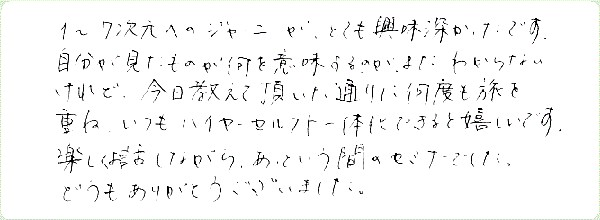 1〜7次元へのジャーニーが、とても興味深かったです。
自分が見たものが何を意味するのか、まだわからない
けれど、今日教えて頂いた通りに何度も旅を
重ね、いつもハイヤーセルフと一体化できると嬉しいです。
楽しくお話しながら、あっという間のセミナーでした。
どうもありがとうございました。